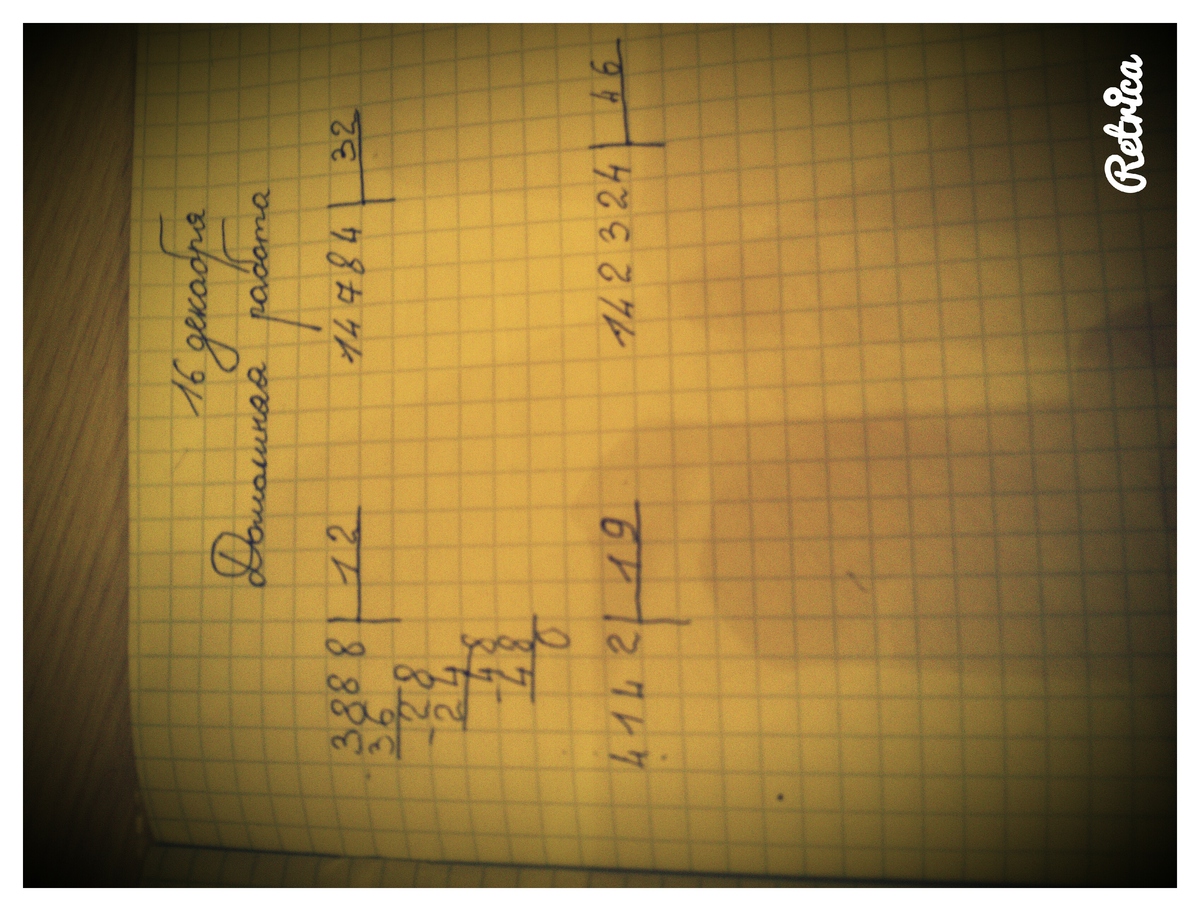 16 декабря
Домашняя работа
3888 | 12
36
- 28
24
- 48
48
0
14784 | 32
4142 | 19
142324 | 46
Retrica